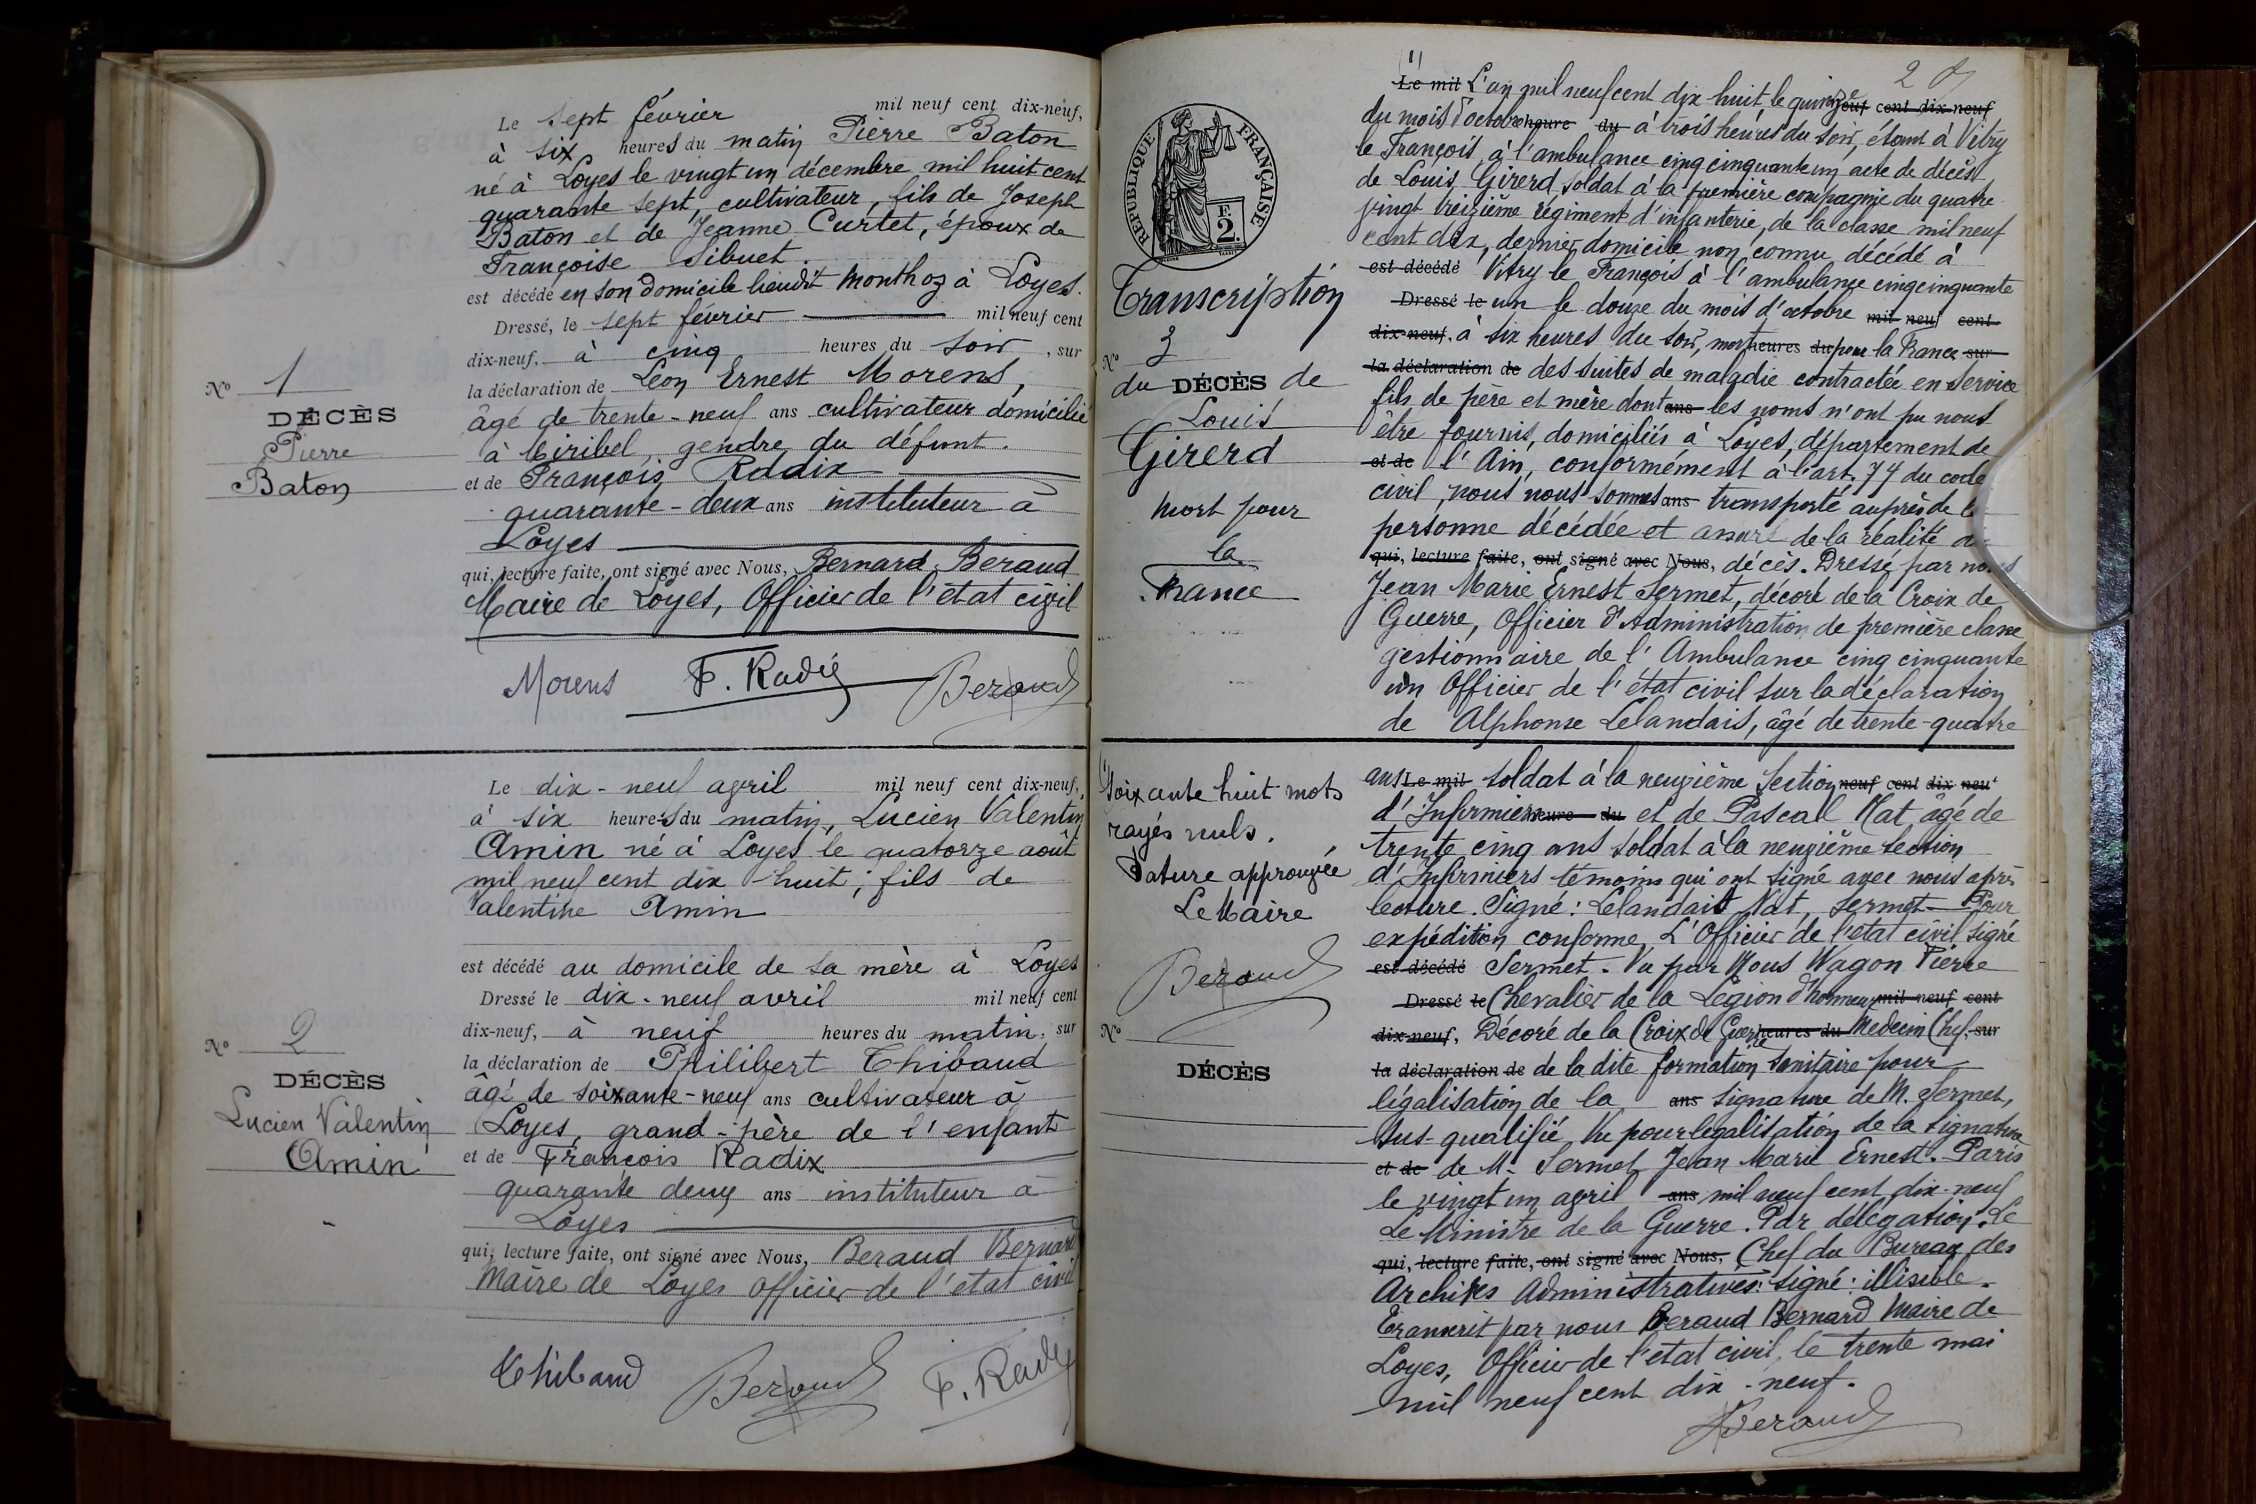 Le sept février mil neuf cent dix-neuf,
à six heures du matin Pierre Baton
né à Loyes le vingt un décembre mil huit cent
quarante sept, cultivateur, fils de Joseph
Baton et de Jeanne Curtet, époux de
Françoise Sibuet.
est décédé en son domicile lieudit Monthoz à Loyes.
Dressé, le sept février mil neuf cent
dix-neuf, à cinq heures du soir, sur
la déclaration de Léon Ernest Morens,
âgé de trente-neuf ans cultivateur domicilié
à Miribel, gendre du défunt.
et de François Radix
quarante-deux ans instituteur à
Loyes
qui, lecture faite, ont signé avec Nous, Bernard Beraud
Maire de Loyes, Officier de l'état civil
Morens F. Radix Beraud
No 1
DÉCÈS
Pierre
Baton
Le dix-neuf avril mil neuf cent dix-neuf,
à six heures du matin, Lucien Valentin
Amin né à Loyes le quatorze août
mil neuf cent dix-huit, fils de
Valentine Amin
est décédé au domicile de sa mère à Loyes
Dressé le dix-neuf avril mil neuf cent
dix-neuf, à neuf heures du matin, sur
la déclaration de Philibert Thibaud
âgé de soixante-neuf ans cultivateur à
Loyes, grand-père de l'enfant
et de François Radix
quarante deux ans instituteur à
Loyes
qui, lecture faite, ont signé avec Nous, Beraud Bernard
Maire de Loyes officier de l'état civil
Thibaud Beraud F. Radix
No 2
DÉCÈS
Lucien Valentin
Amin
2
RÉPUBLIQUE FRANÇAISE
F.
2.
Transcription
No 3
du DÉCÈS de
Louis
Girerd
Mort pour
la
France
Le mil L'an mil neuf cent dix huit le quinze neuf cent dix-neuf
du mois d'octobre heure du à trois heures du soir, étant à Vitry
le François à l'ambulance cinq cinquante un, acte de décès
de Louis Girerd soldat à la première compagnie du quatre
vingt treizième régiment d'infanterie, de la classe mil neuf
cent dix, dernier domicile non connu, décédé à
est décédé Vitry le François à l'ambulance cinq cinquante
Dressé le un le douze du mois d'octobre mil neuf cent
dix-neuf, à six heures du soir, mort heures du pour la France sur
la déclaration de des suites de maladie contractée en service
fils de père et mère dont ans les noms n'ont pu nous
être fournis, domiciliés à Loyes, département de
et de l'Ain, conformément à l'art. 77 du code
civil, nous nous sommes ans transporté auprès de la
personne décédée et assuré de la réalité du
qui, lecture faite, ont signé avec Nous, décès. Dressé par nous
Jean Marie Ernest Sermet, décoré de la Croix de
Guerre, Officier d'Administration de première classe
gestionnaire de l'Ambulance cinq cinquante
un Officier de l'état civil sur la déclaration
de Alphonse Lelandais, âgé de trente-quatre
Soixante huit mots
rayés nuls.
Rature approuvée
Le Maire
Beraud
No
DÉCÈS
ans Le mil soldat à la neuvième Section neuf cent dix neuf
d'Infirmiers heure du et de Pascal Nat âgé de
trente cinq ans soldat à la neuvième section
d'Infirmiers témoins qui ont signé avec nous après
lecture. Signé: Lelandais Nat, Sermet. Pour
expédition conforme, L'Officier de l'état civil signé
est décédé Sermet. Vu par Nous Wagon Pierre
Dressé le Chevalier de la Légion d'honneur mil neuf cent
dix-neuf, Décoré de la Croix de Guerre heures du Médecin Chef, sur
la déclaration de de la dite formation sanitaire pour
légalisation de la ans signature de M. Sermet,
sus-qualifié Vu pour légalisation de la signature
et de de M. Sermet Jean Marie Ernest. Paris
le vingt un avril ans mil neuf cent dix-neuf
Le Ministre de la Guerre. Par délégation. Le
qui, lecture faite, ont signé avec Nous, Chef du Bureau des
Archives Administratives: signé: illisible.
Transcrit par nous Beraud Bernard Maire de
Loyes, Officier de l'état civil, le trente mai
mil neuf cent dix-neuf.
Beraud